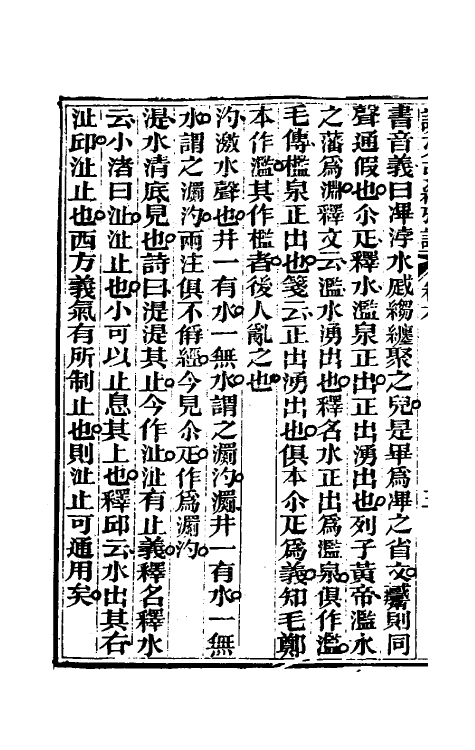 書音義曰渒浡水蹙縐纏聚之皃是畢爲渒之省文觱則同
聲通假也尒疋釋水濫泉正出正出湧出也列子黃帝濫水
之藩爲淵釋文云濫水湧出也釋名水正出爲濫泉俱作濫
毛傳檻泉正出也箋云正出湧出也俱本尒疋爲義知毛鄭
本作濫其作檻者後人亂之也
汋激水聲也井一有水一無水謂之瀱汋瀱井一有水一無
水謂之瀱汋兩注俱不俻經今見尒疋作爲瀱汋
湜水清底見也詩曰湜湜其止今作沚沚有止義釋名釋水
云小渚曰沚沚止也小可以止息其上也釋邱云水出其右
沚邱沚止也西方義氣有所制止也則沚止可通用矣